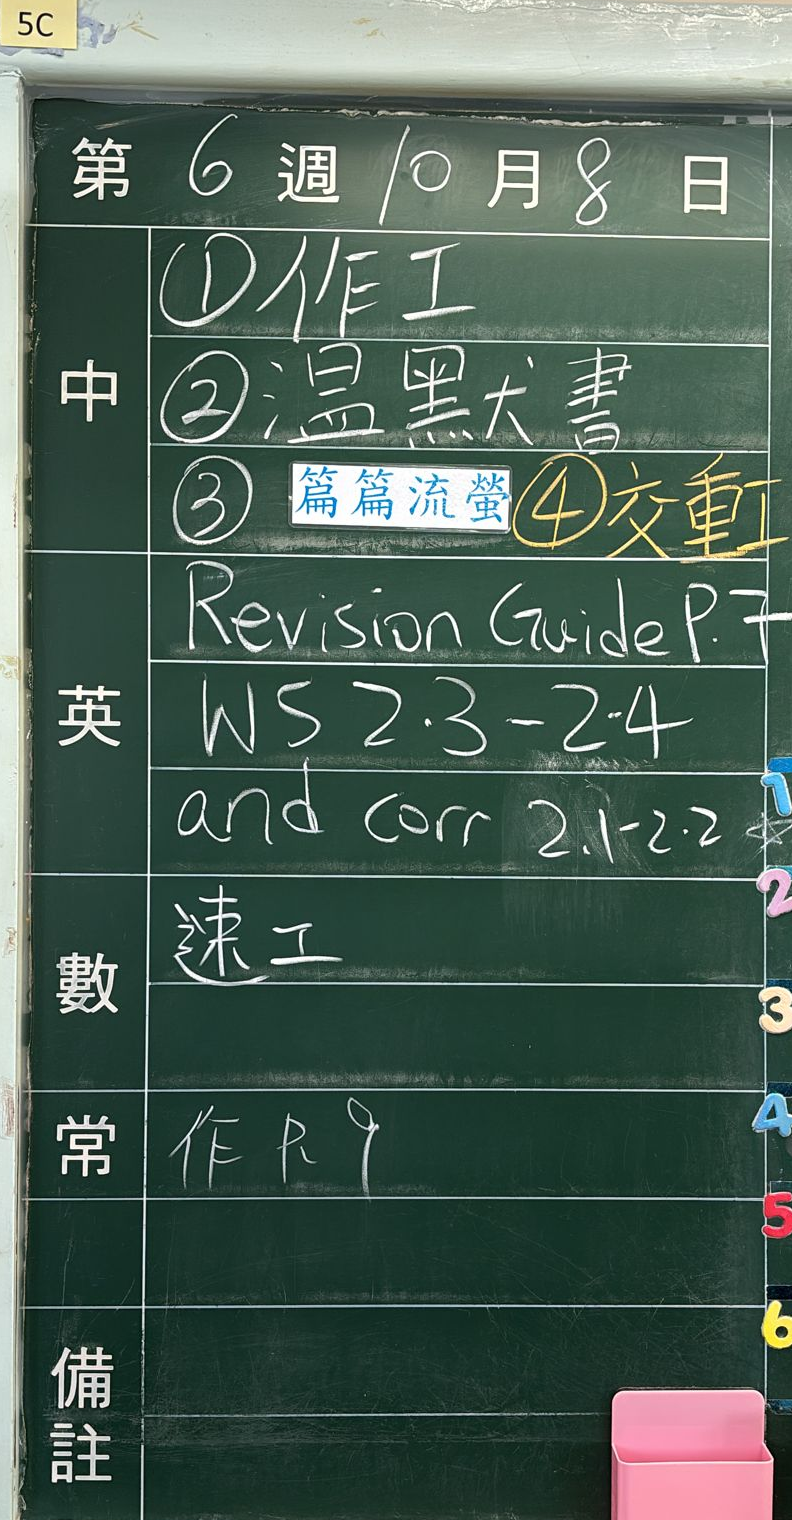 5C
第 6 週 10 月 8 日
中
①作工
②溫默書
③ 篇篇流螢 ④交重工
英
Revision Guide P.7
WS 2.3-2.4
and corr 2.1-2.2
數
速工
常
作 P. 9
備註
1
2
3
4
5
6